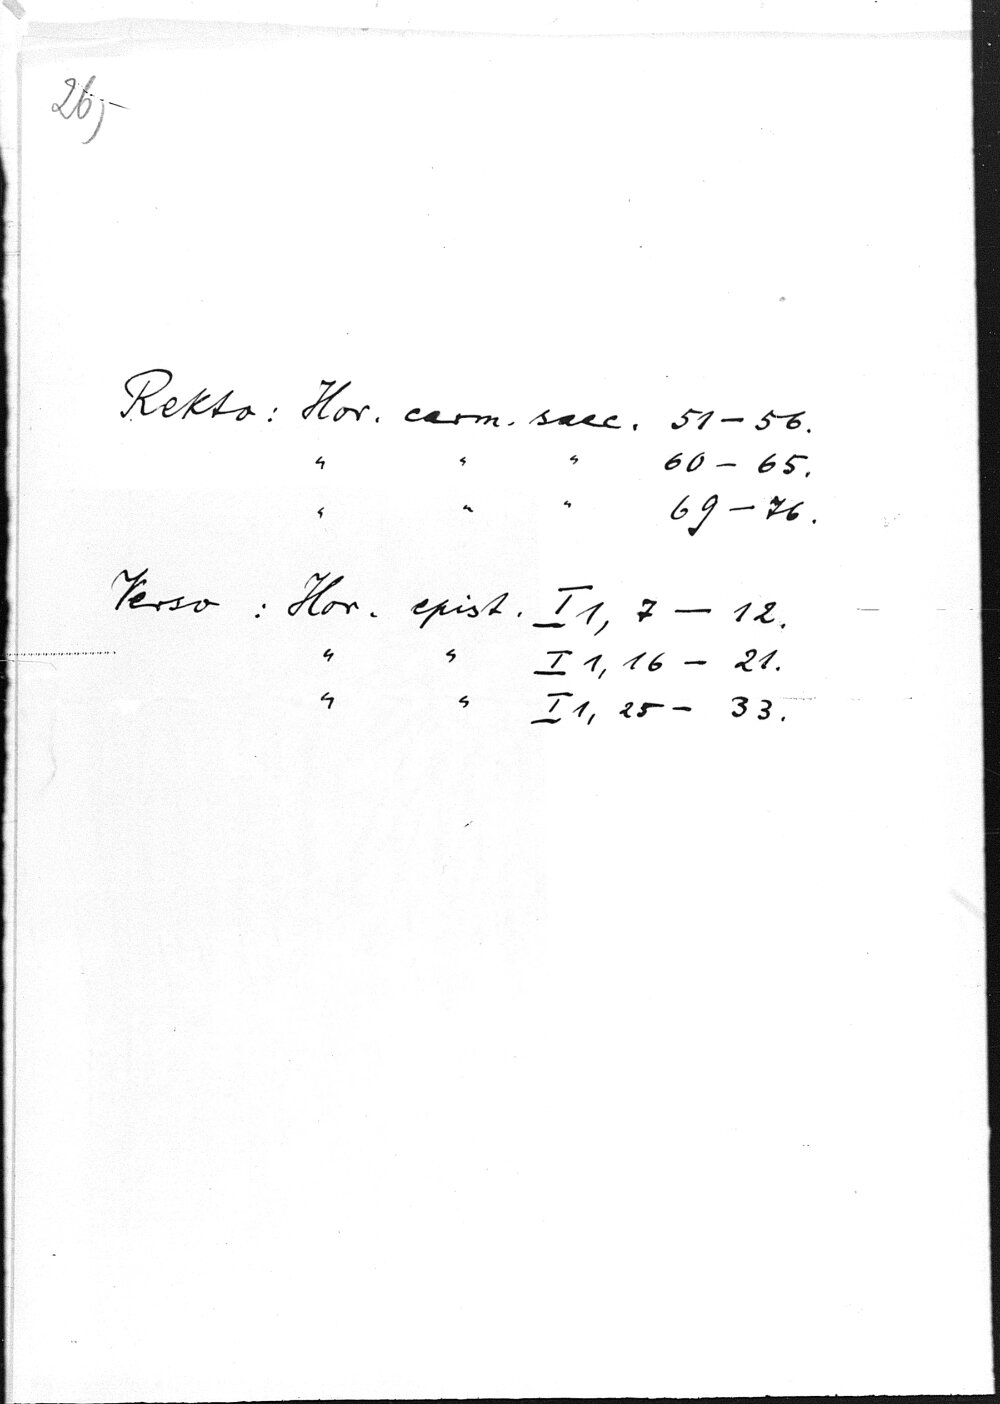 26,-
Rekto: Hor. carm. saec. 51-56.
" " " 60-65.
" " " 69-76.
Verso: Hor. epist. I 1, 7-12.
" " I 1, 16-21.
" " I 1, 25-33.